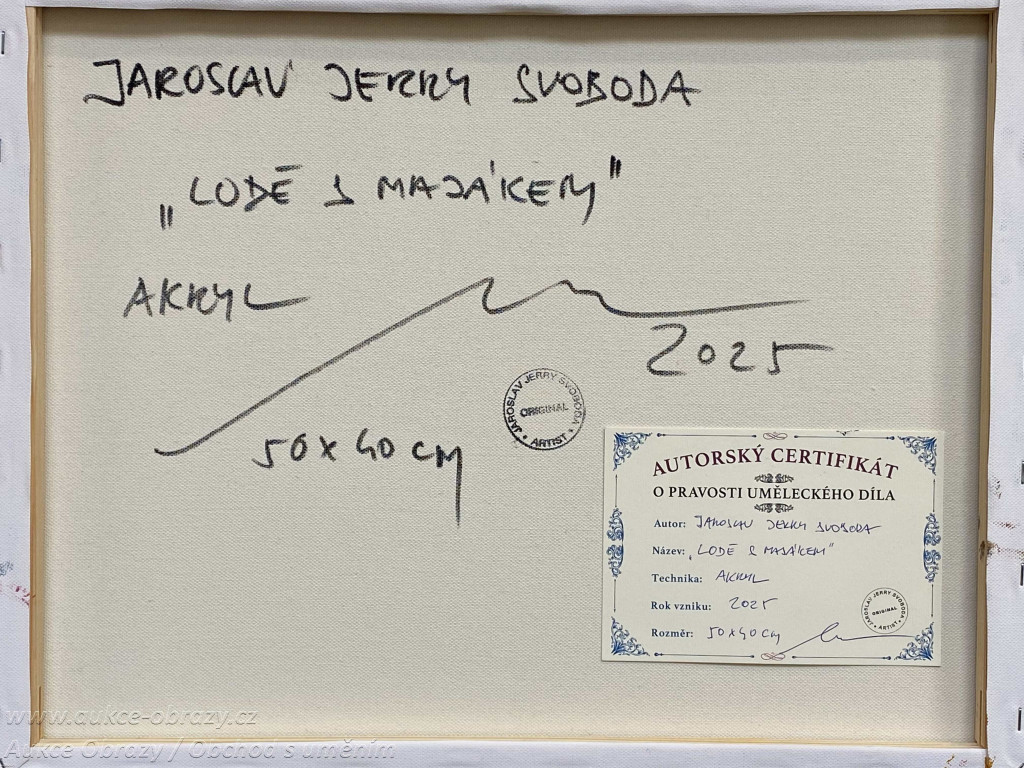 JAROSLAV JERRY SVOBODA
„LODĚ S MAJÁKEM"
AKRYL
2025
50 x 40 CM
JAROSLAV JERRY SVOBODA
ORIGINAL
• ARTIST •
AUTORSKÝ CERTIFIKÁT
O PRAVOSTI UMĚLECKÉHO DÍLA
Autor: JAROSLAV JERRY SVOBODA
Název: „LODĚ S MAJÁKEM"
Technika: AKRYL
Rok vzniku: 2025
Rozměr: 50x40 cm
JAROSLAV JERRY SVOBODA
ORIGINAL
• ARTIST •
www.aukce-obrazy.cz
Aukce Obrazy / Obchod s uměním